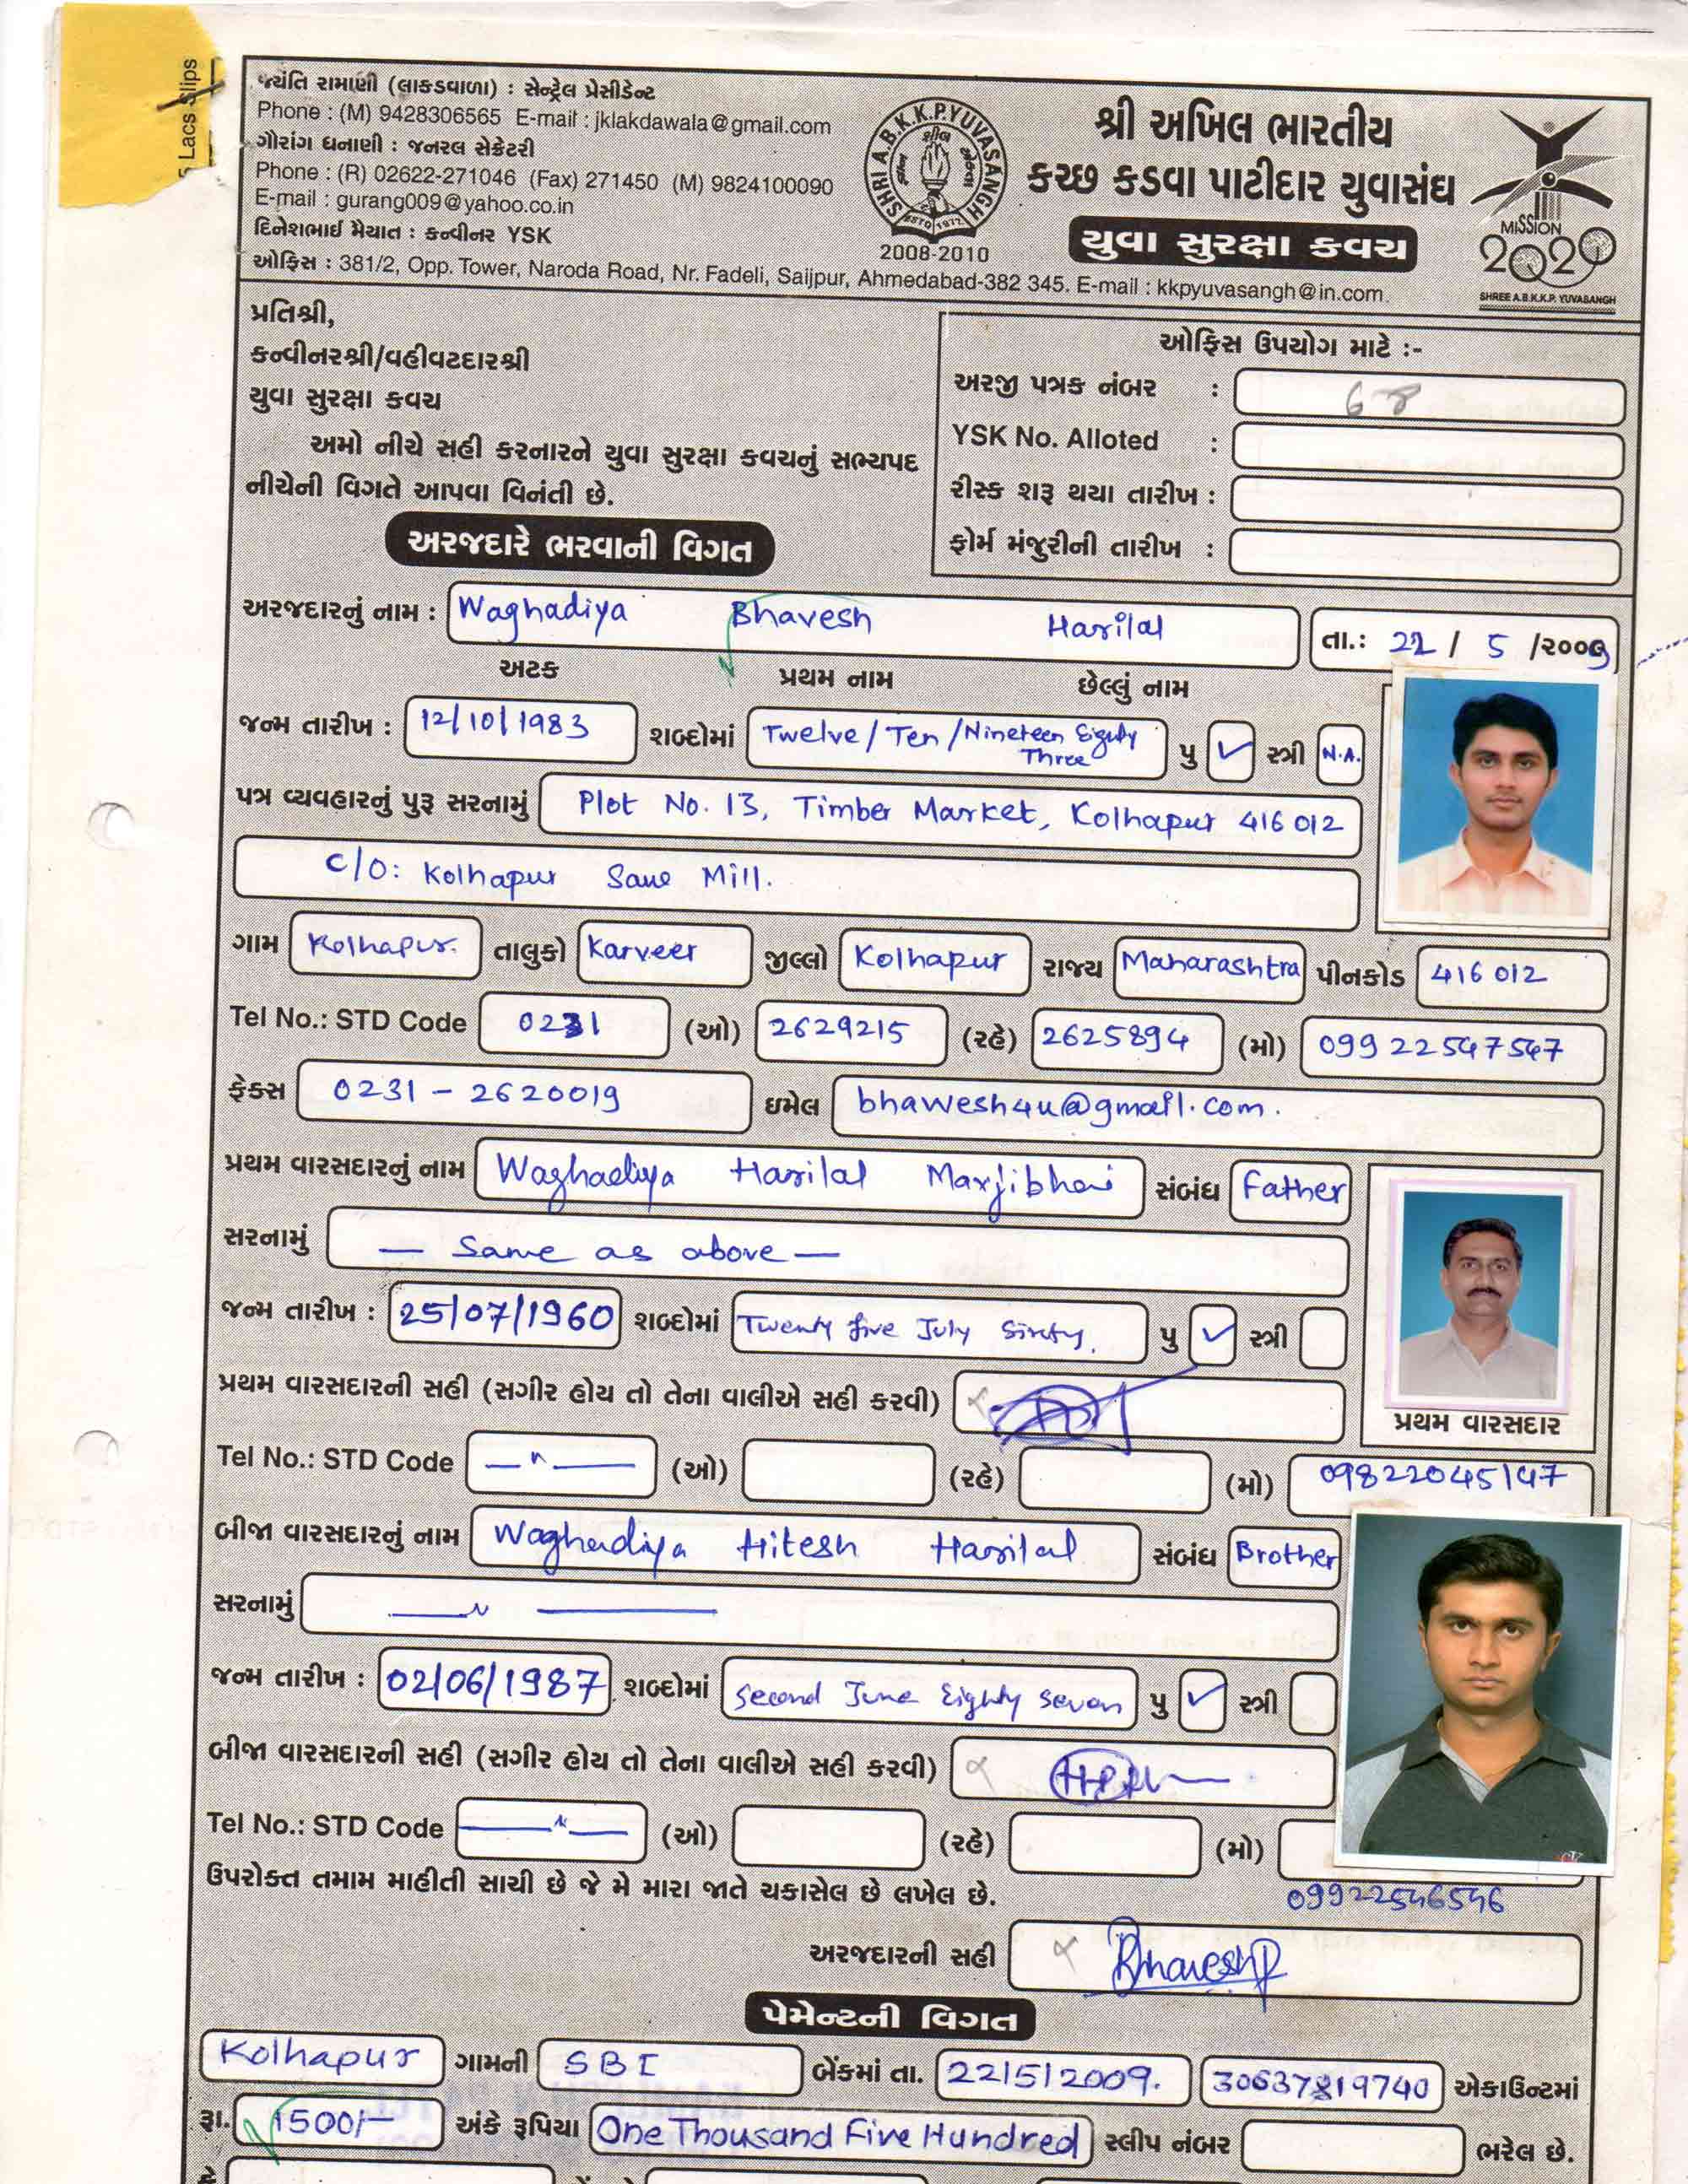 5 Lacs Slips
જયંતિ રામાણી (લાકડાવાળા) : સેન્ટ્રેલ પ્રેસીડેન્ટ
Phone : (M) 9428306565 E-mail : jklakdawala@gmail.com
ગૌરાંગ ધનાણી : જનરલ સેક્રેટરી
Phone : (R) 02622-271046 (Fax) 271450 (M) 9824100090
E-mail : gurang009@yahoo.co.in
દિનેશભાઈ મૈયાત : કન્વીનર YSK
ઓફિસ : 381/2, Opp. Tower, Naroda Road, Nr. Fadeli, Saijpur, Ahmedabad-382 345. E-mail : kkpyuvasangh@in.com.
SHRI A.B.K.K.P.YUVASANGH
ESTD 1972
2008-2010
શ્રી અખિલ ભારતીય
કચ્છ કડવા પાટીદાર યુવાસંઘ
યુવા સુરક્ષા કવચ
MISSION
2020
SHREE A.B.K.K.P. YUVASANGH
પ્રતિશ્રી,
કન્વીનરશ્રી/વહીવટદારશ્રી
યુવા સુરક્ષા કવચ
અમો નીચે સહી કરનારને યુવા સુરક્ષા કવચનું સભ્યપદ
નીચેની વિગતે આપવા વિનંતી છે.
ઓફિસ ઉપયોગ માટે :-
અરજી પત્રક નંબર : 68
YSK No. Alloted :
રીસ્ક શરૂ થયા તારીખ :
ફોર્મ મંજુરીની તારીખ :
અરજદારે ભરવાની વિગત
અરજદારનું નામ : Waghadiya Bhavesh Harilal તા.: 22 / 5 /૨૦૦9
અટક પ્રથમ નામ છેલ્લું નામ
જન્મ તારીખ : 12/10/1983 શબ્દોમાં Twelve/Ten/Nineteen Eighty Three પુ ✓ સ્ત્રી N.A.
પત્ર વ્યવહારનું પુરૂ સરનામું Plot No. 13, Timber Market, Kolhapur 416 012
C/O: Kolhapur Saw Mill.
ગામ Kolhapur. તાલુકો Karveer જીલ્લો Kolhapur રાજ્ય Maharashtra પીનકોડ 416 012
Tel No.: STD Code 0231 (ઓ) 2629215 (રહે) 2625894 (મો) 099 22547547
ફેક્સ 0231 - 2620019 ઇમેલ bhawesh4u@gmail.com.
પ્રથમ વારસદારનું નામ Waghadiya Harilal Marjibhai સંબંધ Father
સરનામું — Same as above —
જન્મ તારીખ : 25/07/1960 શબ્દોમાં Twenty five July Sixty. પુ ✓ સ્ત્રી
પ્રથમ વારસદારની સહી (સગીર હોય તો તેના વાલીએ સહી કરવી)
પ્રથમ વારસદાર
Tel No.: STD Code —"— (ઓ) (રહે) (મો) 09822045147
બીજા વારસદારનું નામ Waghadiya Hitesh Harilal સંબંધ Brother
સરનામું —"—
જન્મ તારીખ : 02/06/1987 શબ્દોમાં Second June Eighty Seven પુ ✓ સ્ત્રી
બીજા વારસદારની સહી (સગીર હોય તો તેના વાલીએ સહી કરવી)
Tel No.: STD Code —"— (ઓ) (રહે) (મો)
09922546546
ઉપરોક્ત તમામ માહીતી સાચી છે જે મે મારા જાતે ચકાસેલ છે લખેલ છે.
અરજદારની સહી Bhavesh
પેમેન્ટની વિગત
Kolhapur ગામની SBI બેંકમાં તા. 22/5/2009. 30637819740 એકાઉન્ટમાં
રૂા. 1500/- અંકે રૂપિયા One Thousand Five Hundred સ્લીપ નંબર ભરેલ છે.